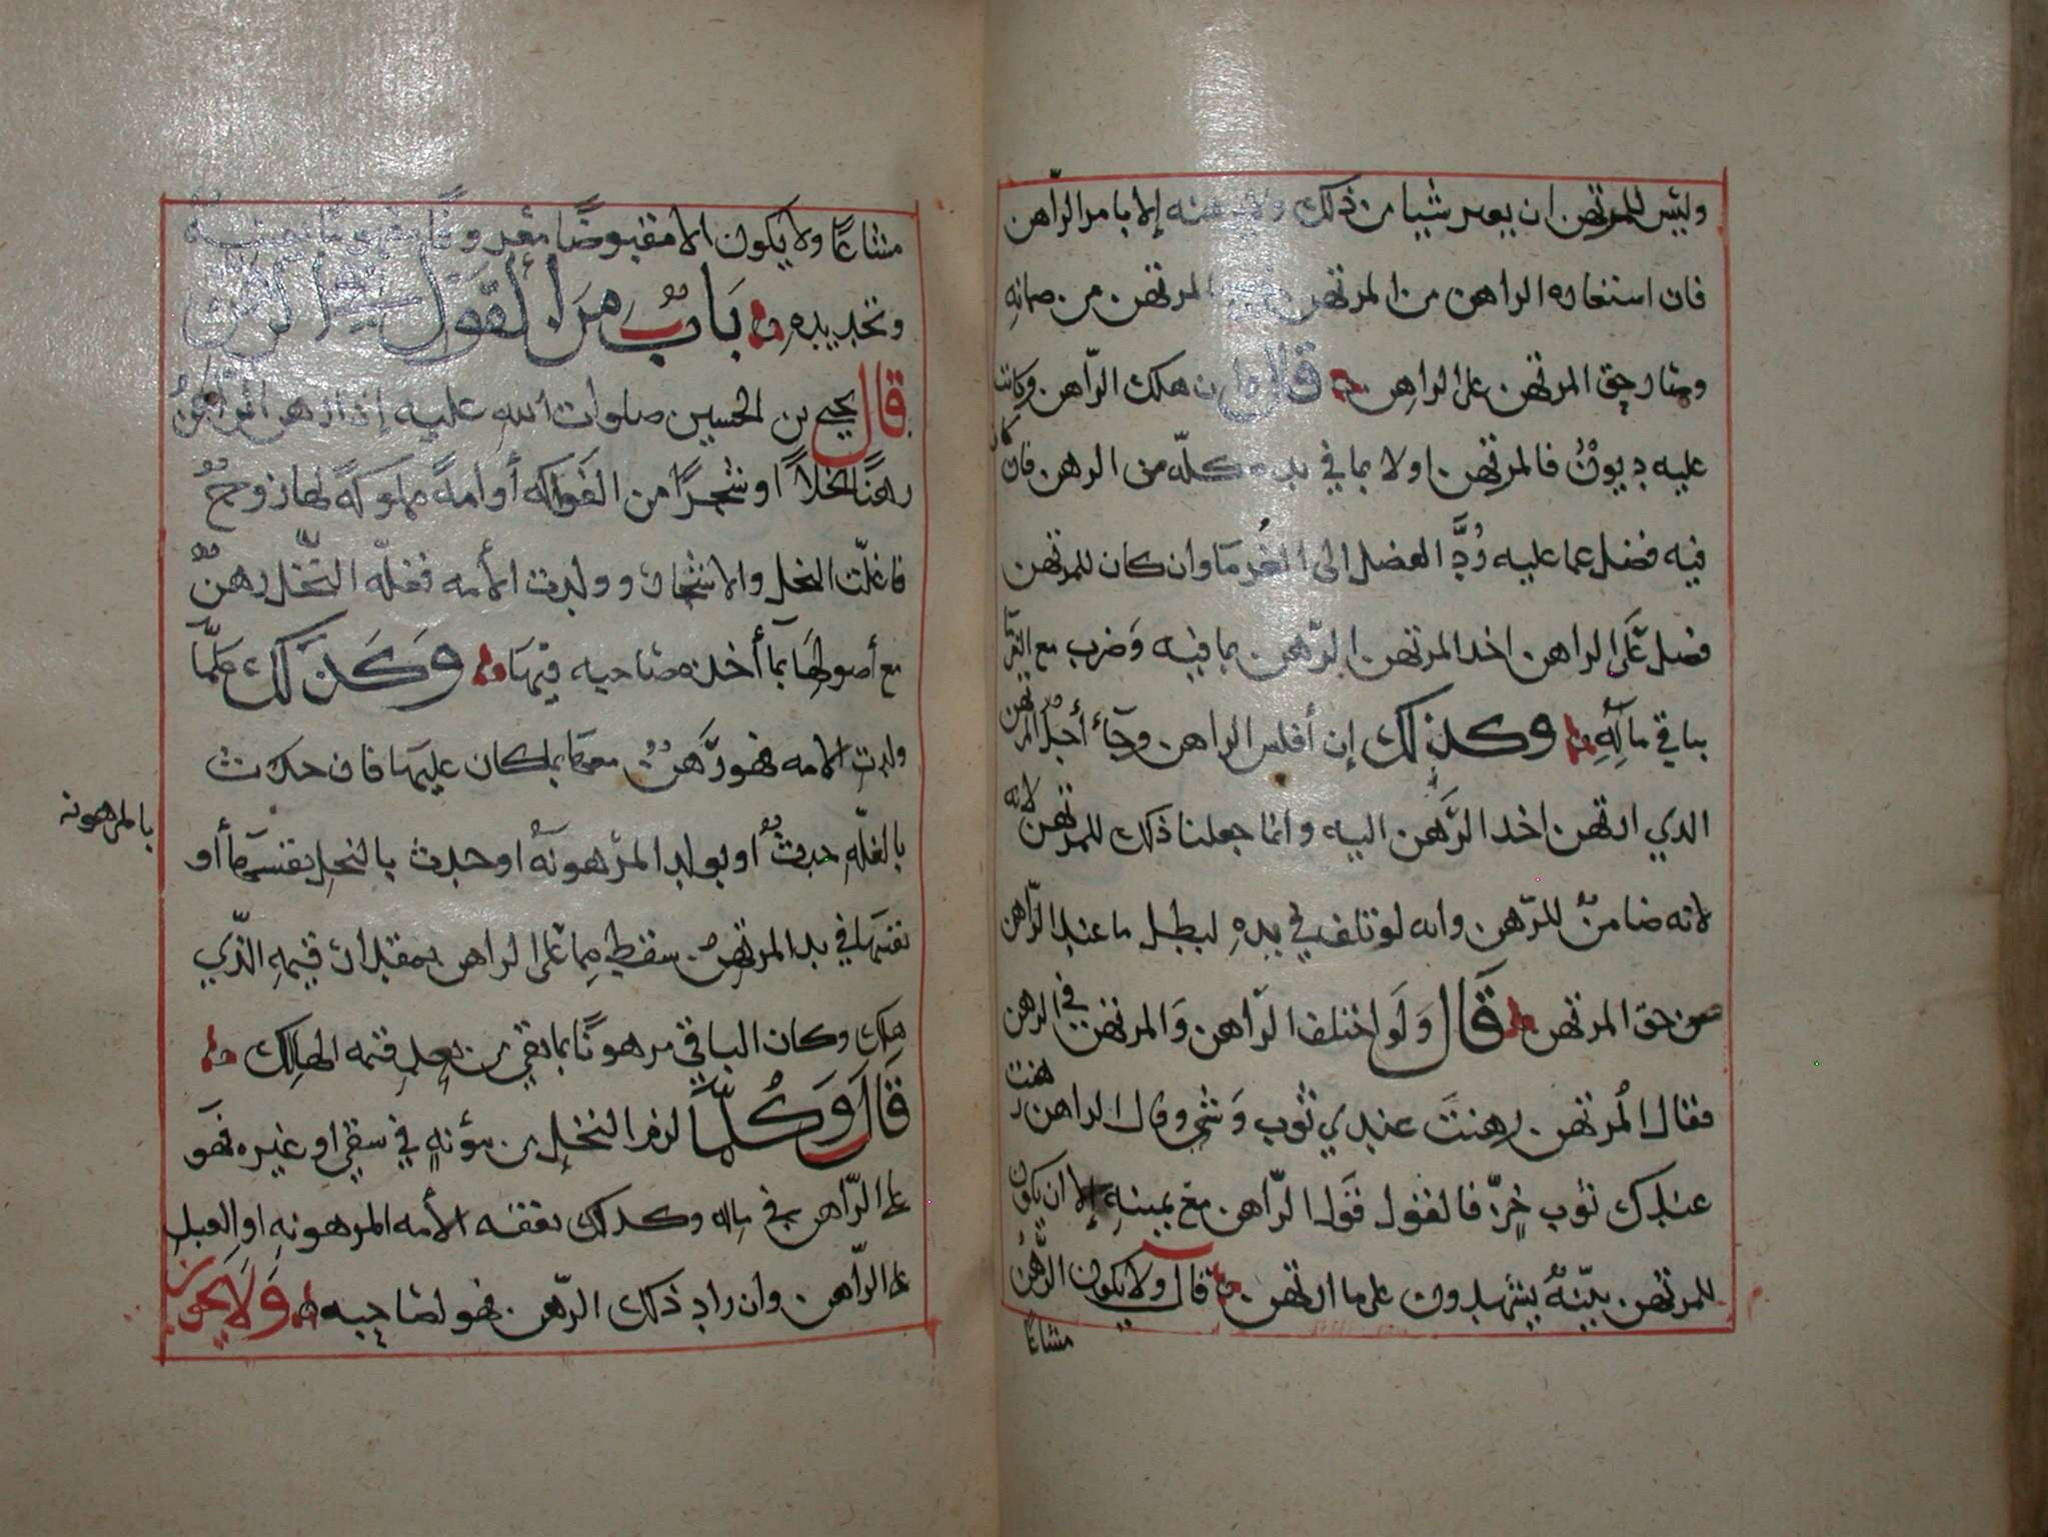 وليس للمرتهن ان يعير شيا من ذلك ولا يرهنه إلا بامر الرّاهن
فان استعاره الراهن من المرتهن المرتهن من ضمانه
وصار حق المرتهن على الراهن قال وان هلك الرّاهن وكانت
عليه ديونٌ فالمرتهن اولا بما في يده كلّه من الرهن فان كان
فيه فضل عما عليه رُدَّ الفضل الى الغُرمَا وان كان للمرتهن
فضل عَلَى الراهن اخذ المرتهن الرّهن بما فيه وَضرب مع الغرمآ
بباقي مَالَهِ وكذلك إن أفلس الراهن وجَآءَ أجلُ الرهن
الذي ارتهن اخذ الرَّهن اليه وانما جعلنا ذلك للمرتهن لانه
لانه ضامنٌ للرّهن وانه لو تلف في يدهِ لبطل ما عند الرّاهن
من حق المرتهن قَالَ وَلَو اختلف الرّاهن وَالمرتهن في الرهن
فقال المُرتهن رهنتَ عندي ثوب وَشي وقال الراهن رهنت
عندك ثوب خزٍّ فالقول قَول الرّاهن مع يمينهِ إلا ان يكون
للمرتهن بيّنهٌ يشهدون على ما ارتهن قال ولا يكون الرَّهنُ
مشاعًا
مشاعًا ولا يكون الا مقبوضًا معروفًا مفهومًا بعينه
وتحديده بَابٌ مِنَ القَول في الرهن
قال يحيى بن الحسين صلوات الله عليه إذا رهن الراهنُ
رهنًا نخلاً او شجرًا من الفَواكه أو امهً مملوكهً لها زوجٌ
فاغلّت النخل والاشجار وولدت الأمه فغلّه النَّخل رهنٌ
مع أصولهَا بمَا أخذه صَاحبه فيهَا وَكَذَلك كلّمَا
ولدتِ الامه فهو رَهنٌ معهَا بما كان عليهَا فان حدث
بالغلّهِ حدثٌ او بولد المرهونَه او حدث بالنخل بنفسهَا أو
بالمرهونه
نفسهَا في يد المرتهن سقط مِما عَلى الراهن بمقدار قيمهِ الذّي
هلك وكان الباقي مرهونًا بما بقي من بعدِ قيمه الهالِك
قَالَ وَكُلّمَا لزم النخل من مؤنهٍ في سقي او غيره فهَو
على الرّاهن في ماله وكذلك نفقه الأمه المرهونهِ او العبد
على الرّاهن وان زاد ذلك الرّهن فهو لصَاحِبه وَلاَ يجوز